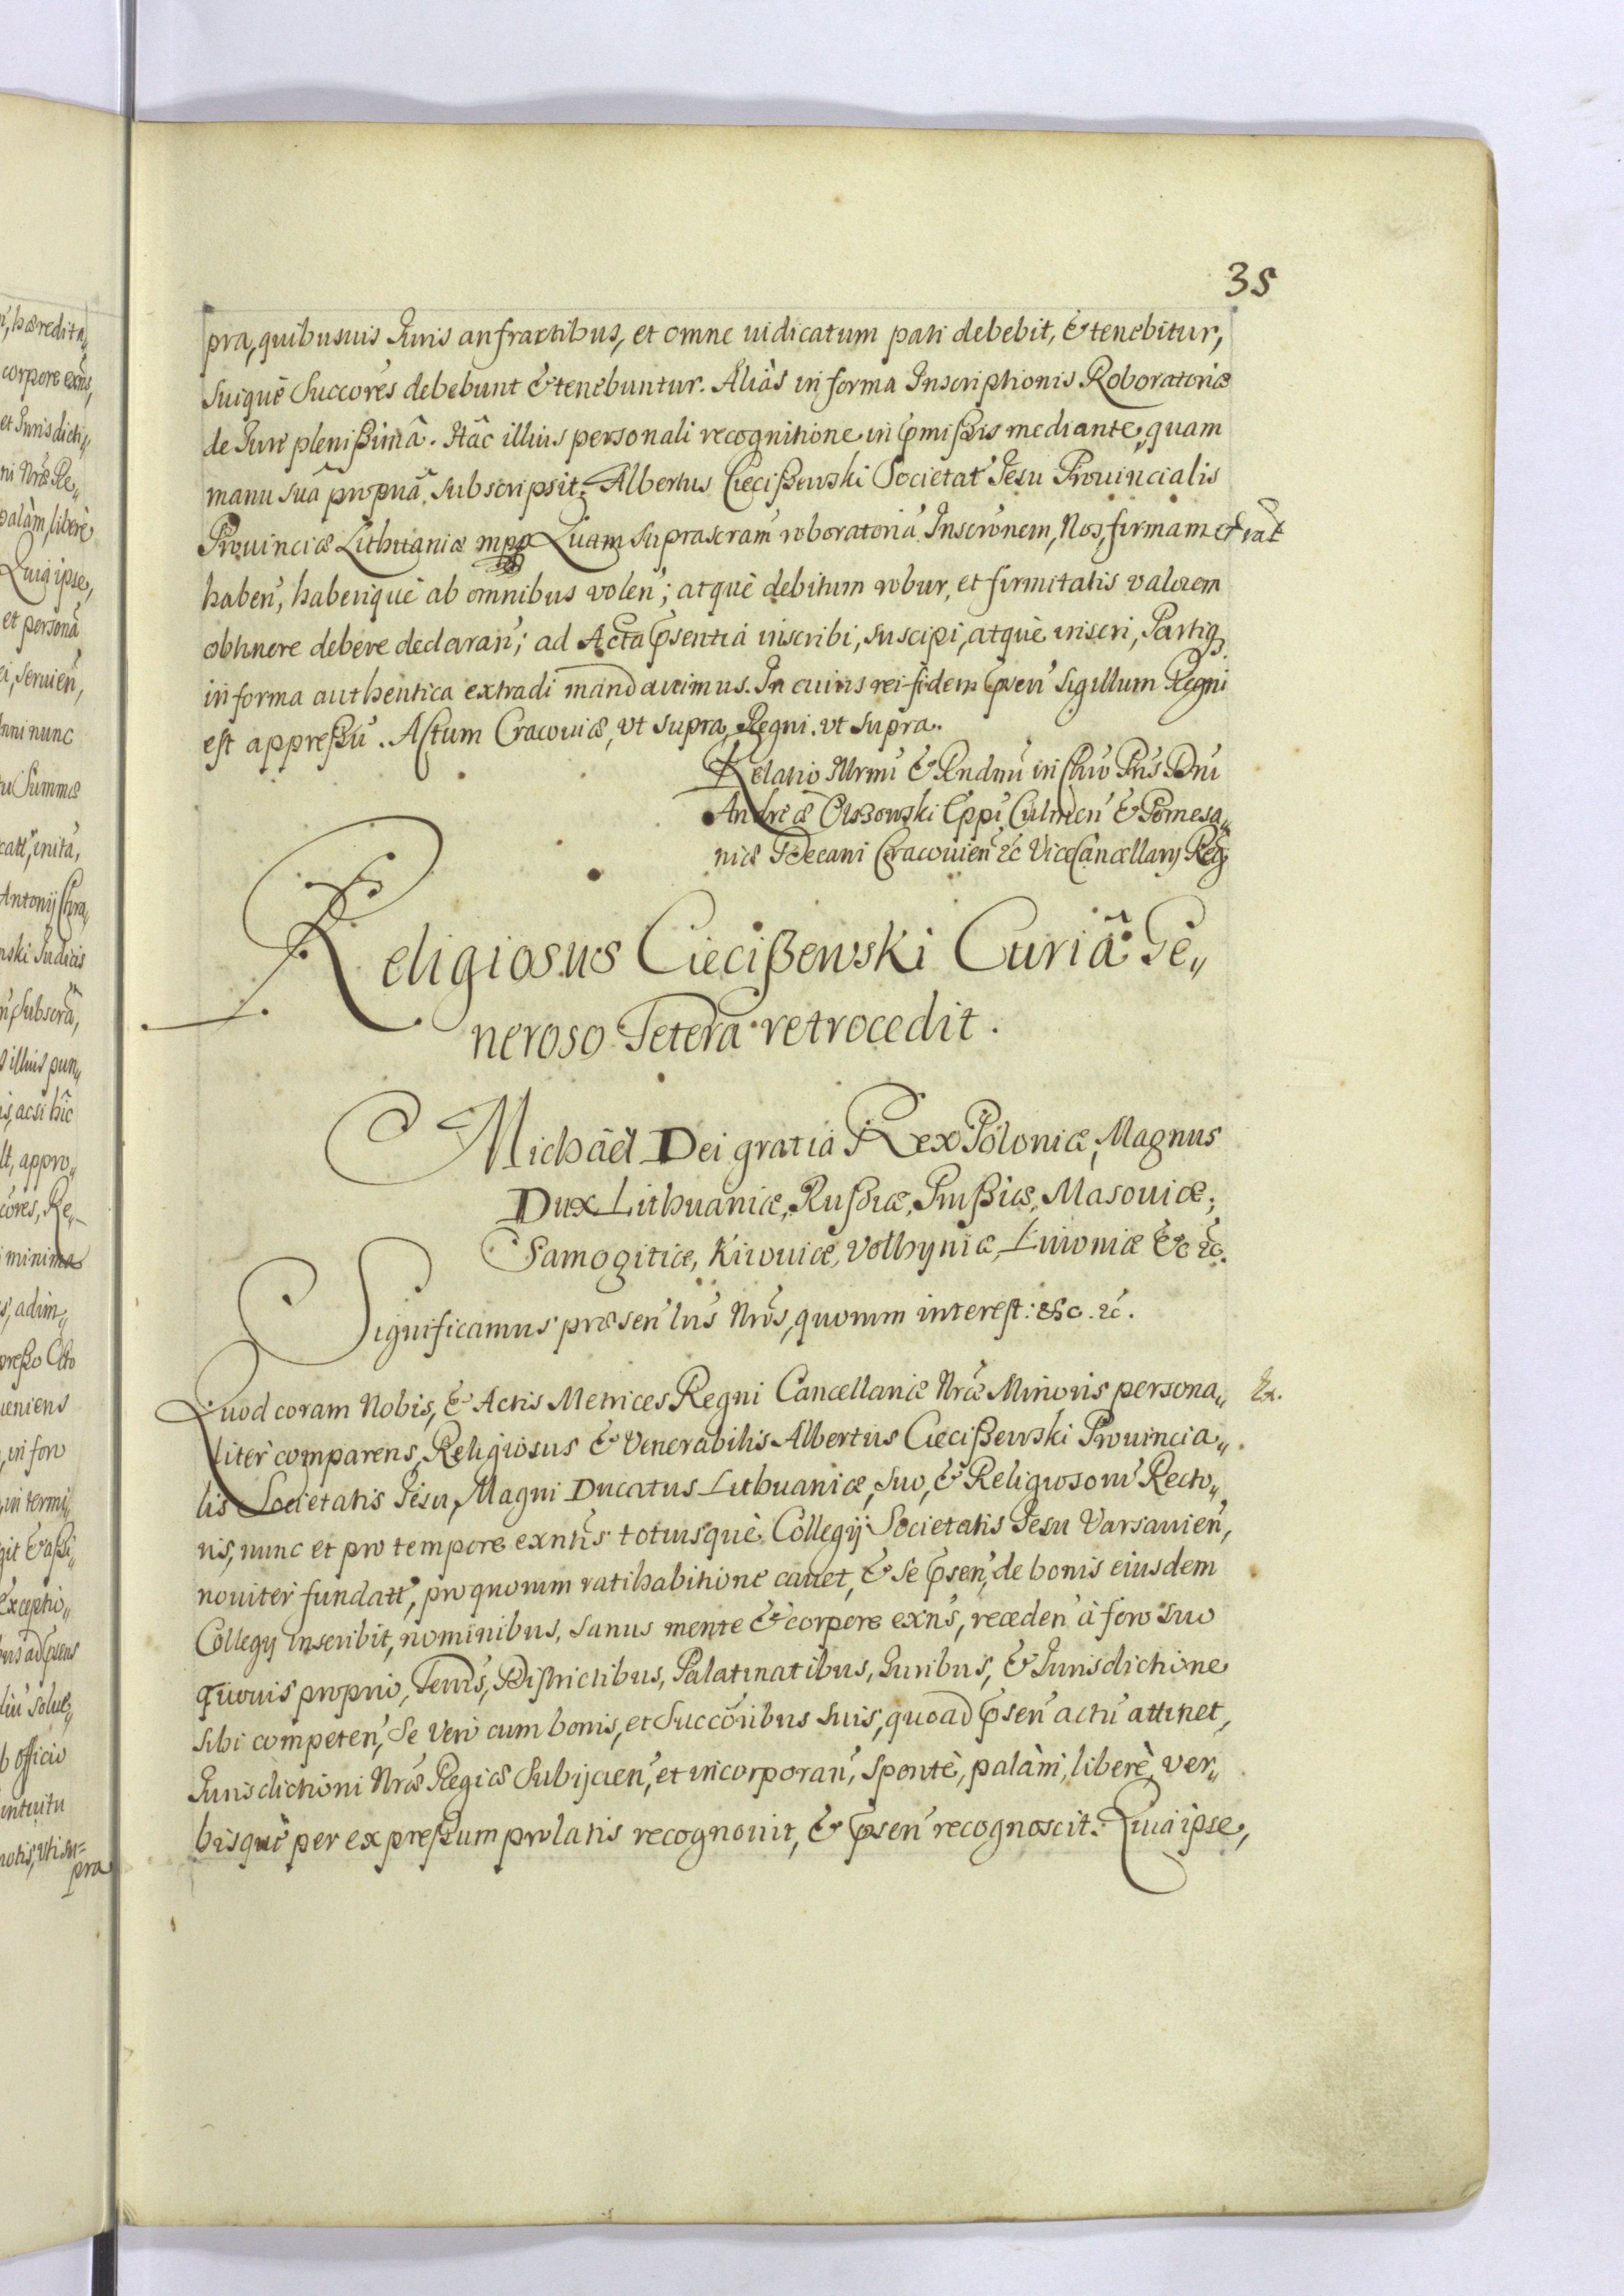 35
pra, quibusuis Iuris anfractibus, et omne iudicatum pati debebit, & tenebitur,
Suiquè Succores debebunt & tenebuntur. Aliàs in forma Inscriptionis Roboratoriæ
de Iure plenißimâ. Hâc illius personali recognitione in p̄mißis mediante, quam
manu suâ propuâ subscripsit. Albertus Ciecißewski Societat̃ Iesu Prouincialis
Prouinciæ Lithuaniæ mpp Quam suprascram̃ roboratoriã Inscr̃onem, Nos, firmam et rat̃
haben̄, haberiquè ab omnibus volen̄; atquè debitum robur, et firmitatis valorem
obtinere debere declaran̄; ad Acta p̄sentia inscribi, suscipi, atquè inseri, Partiq
in forma authentica extradi mandauimus. In cuius rei fidem p̄sen̄ Sigillum Regni
est appreßũ. Actum Cracouiæ, vt supra, Regni vt supra.
Relatio Illrmi & Rndmi in Chro Pris Dni
Andreæ Olßowski Ep̄pi Culmen̄ & Pomesa„
niæ Decani Cracouien̄ &c ViceCancellarij Reg
Religiosus Ciecißewski Curiâ Ge„
neroso Tetera retrocedit.
Michäel Dei gratia Rex Poloniæ, Magnus
Dux Lithuaniæ, Rußiæ, Prußiæ, Masouiæ,
Samogitiæ, Kiiouiæ, Volhyniæ, Liuoniæ &c &c.
Significamus præsen̄ lr̃is Nr̃is, quorum interest: &c. &c.
Quod coram Nobis, & Actis Metrices Regni Cancellariæ Nr̃æ Minoris persona„
liter comparens, Religiosus & Venerabilis Albertus Ciecißewski Prouincia„
lis Societatis Jesu, Magni Ducatus Lithuaniæ, suo, & Religiosorũ Recto„
ris, nunc et pro tempore exñtis totiusquè Collegij Societatis Jesu Varsauien̄,
nouiter fundatt̃, pro quorum ratihabitione cauet, & se p̄sen̄, de bonis eiusdem
Collegij inscribit, nominibus, sanus mente & corpore exñs, receden̄ à foro suo
quouis proprio, Terris, Districtibus, Palatinatibus, Iuribus, & Iurisdictione
sibi competen̄, Se vero cum bonis, et Succoribus suis, quoad p̄sen̄ actũ attinet,
Iurisdictioni Nr̃æ Regiæ Subijcien̄, et incorporan̄, Spontè, palàm, liberè, ver„
bisquè per expreßum prolatis recognouit, & p̄sen̄ recognoscit. Quia ipse,